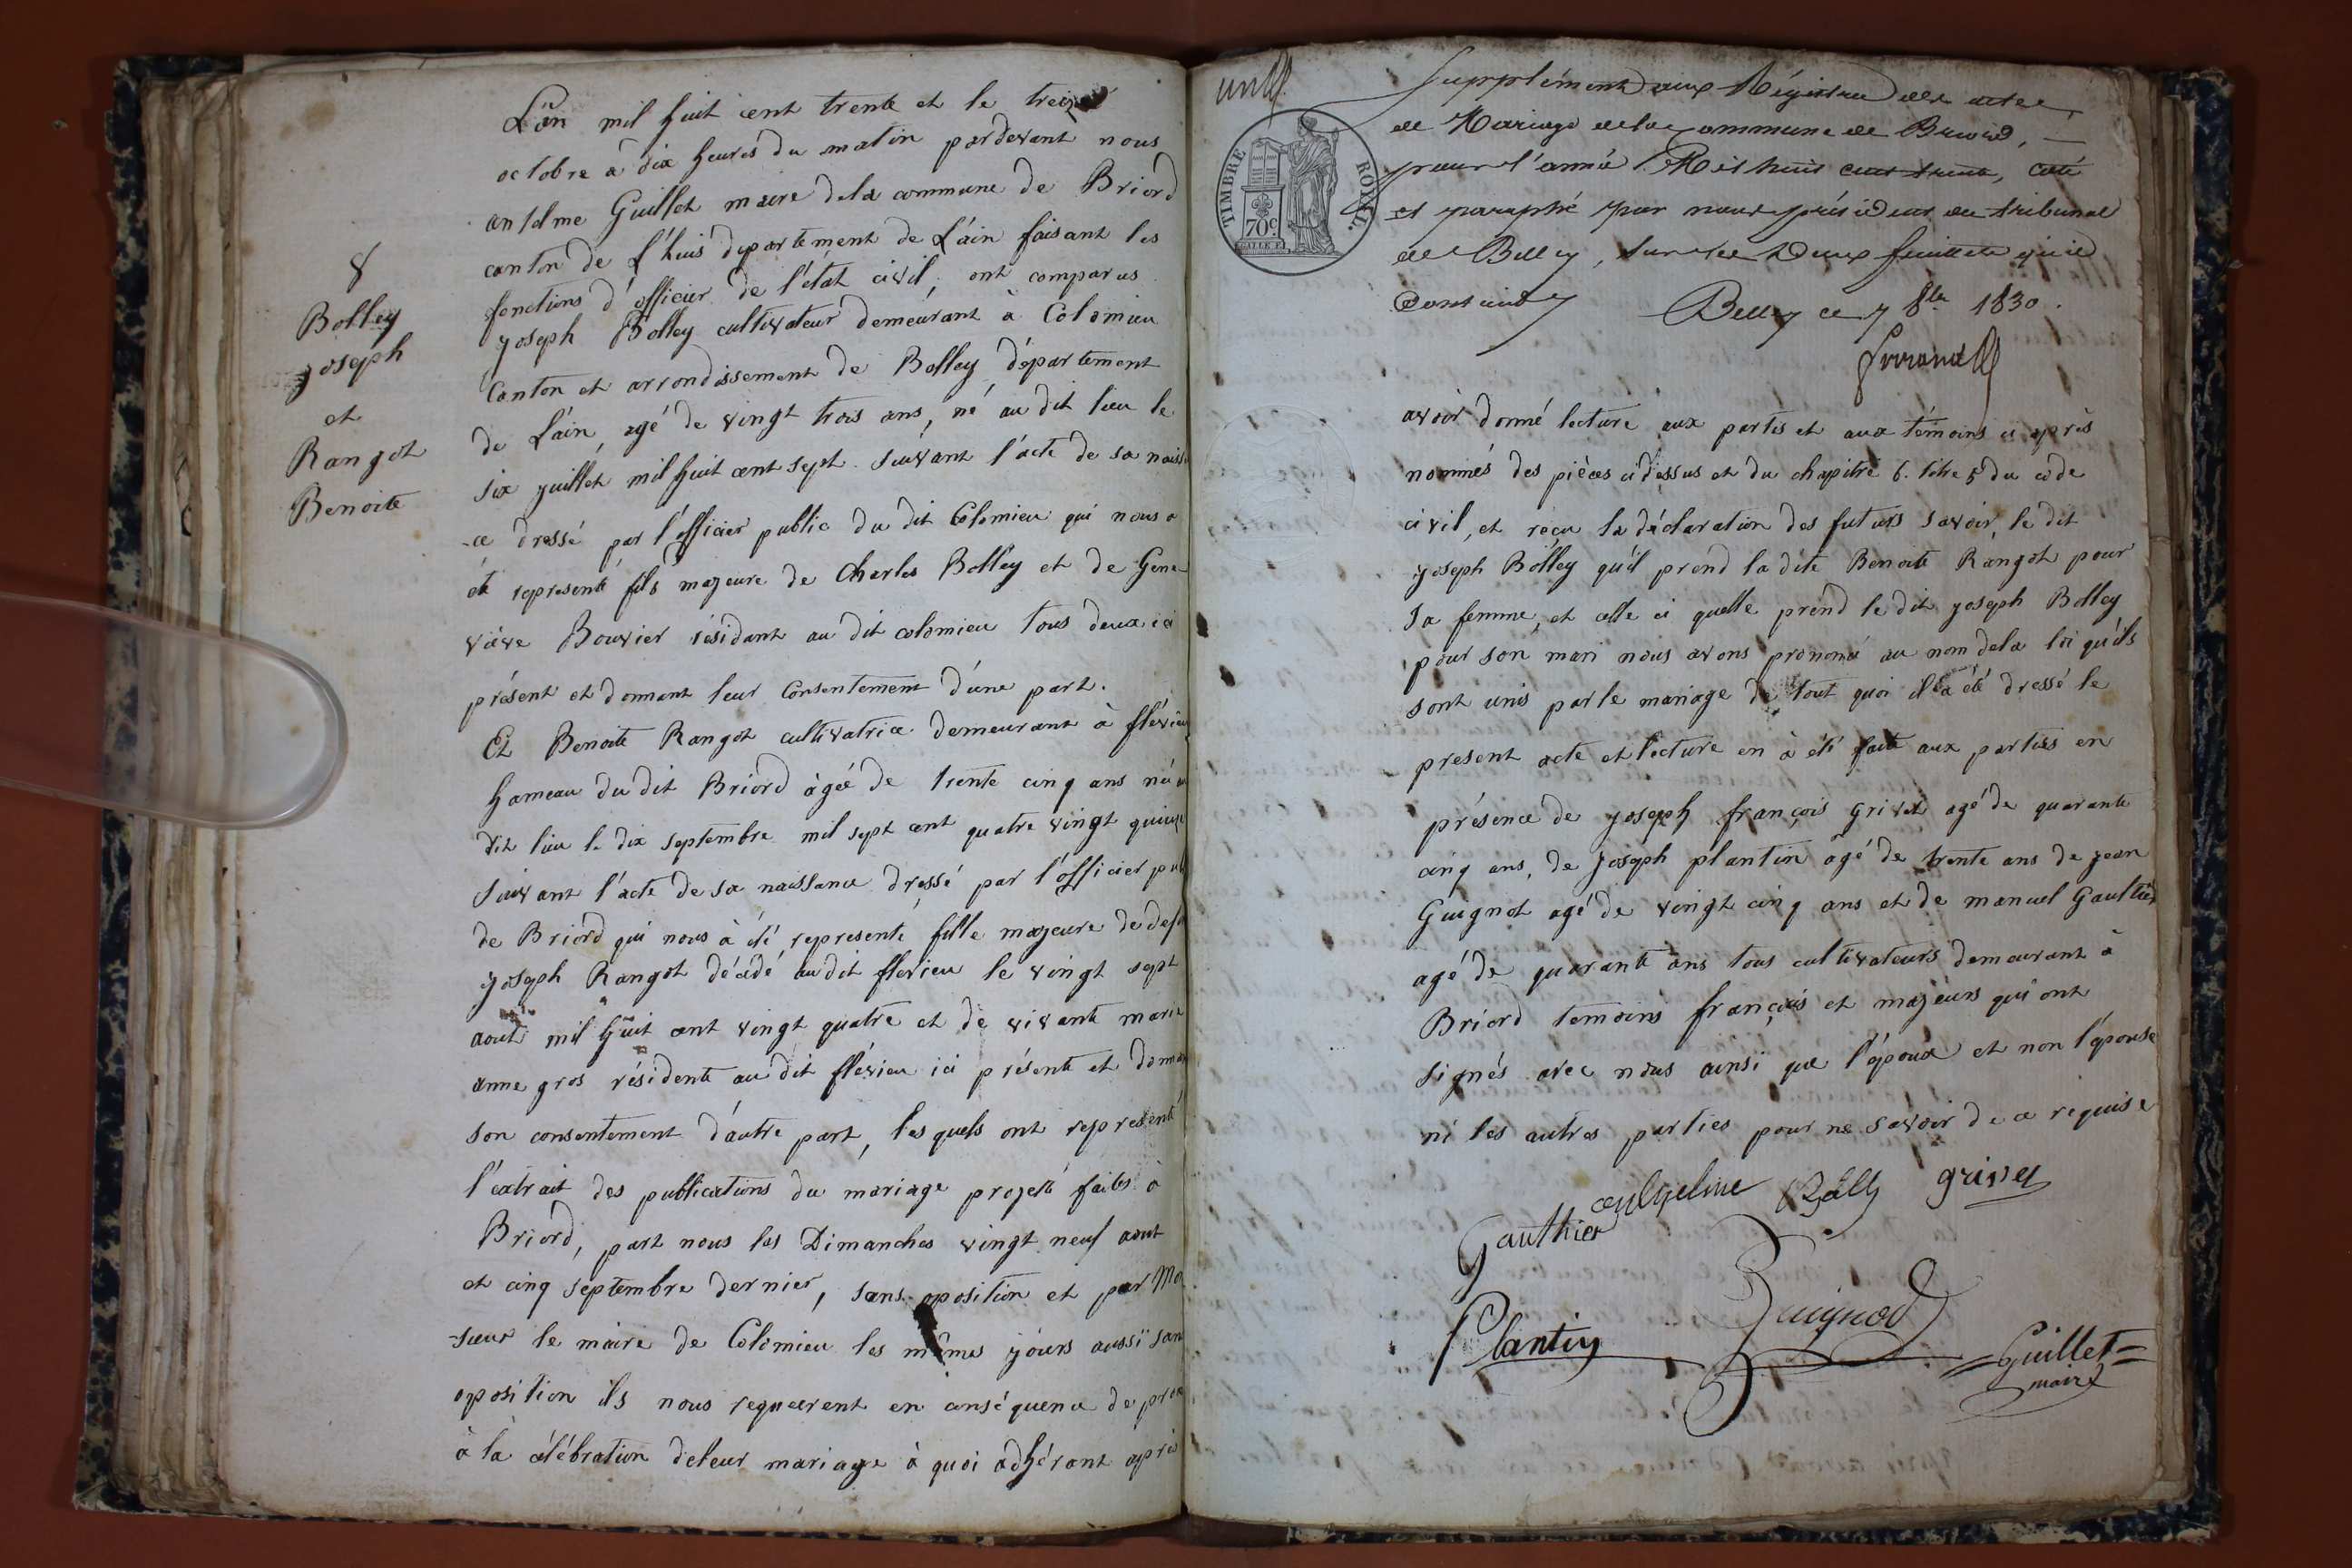 8
Bolley
joseph
et
Rangot
Benoite
L'an mil huit cent trente et le treize
octobre à dix heures du matin pardevant nous
antelme Guillet maire dela commune de Briord
canton de l'huis departement de L'ain faisant les
fonctions d'officier de l'état civil, ont comparus
joseph Bolley cultivateur demeurant à Colomieu
Canton et arrondissement de Belley département
de L'ain, agé de vingt trois ans, né au dit lieu le
six juillet mil huit cent sept. suivant l'acte de sa naiss
-ce dressé par l'officier public du dit Colomieu qui nous a
été representé fils majeure de Charles Bolley et de Gene
viève Bouvier résidant au dit colomieu tous deux ici
présent et donnant leur Consentement d'une part.
Et Benoite Rangot cultivatrice demeurant à flévieu
hameau du dit Briord àgée de trente cinq ans née au
dit lieu le dix septembre mil sept cent quatre vingt quinze
suivant l'acte de sa naissance dressé par l'officier pub
de Briord qui nous à été representé fille majeure de def
joseph Rangot décédé audit flevieu le vingt sept
aout mil huit cent vingt quatre et de vivante marie
anne gros résidente au dit flévieu ici présente et donnan
son consentement d'autre part, les quels ont representé
l'extrait des publications du mariage projetté faites à
Briord, part nous les Dimanches vingt neuf aout
et cinq septembre dernier, sans oposition et par Mon
-sieur le maire de Colomieu les mêmes jours aussi san
oposition ils nous requierent en conséquence de proc
à la célébration deleur mariage à quoi adhérant après
TIMBRE ROYAL.
70c.
Supplément aux Régistres des actes
de Mariage de la Commune de Briord,
pour l'année Mil huit cent trente, coté
et paraphé par nous président du tribunal
de Belley, sur les deux feuillets qu'il
Contient
Belley ce 7 8bre 1830.
avoir donné lecture aux partis et aux témoins ci après
nommés des pièces ci dessus et du chapitre 6. titre 5 du code
civil, et reçu la déclaration des futurs savoir, le dit
joseph Bolley qu'il prend la dite Benoite Rangot pour
sa femme, et celle ci quelle prend le dit joseph Bolley
pour son mari nous avons prononcé au nom dela loi qu'ils
sont unis par le mariage de tout quoi il a été dressé le
present acte et lecture en à été faite aux parties en
présence de joseph françois grivet agé de quarante
cinq ans, de joseph plantin âgé de trente ans de jean
Guignot agé de vingt cinq ans et de manuel Gaultier
agé de quarante ans tous cultivateurs demeurant à
Briord temoins français et majeurs qui ont
signés avec nous ainsi que l'époux et non l'épouse
ni les autres parties pour ne savoir de ce requise
Bolly grivet
Gauthier
Plantin
Guignod
Guillet
maire